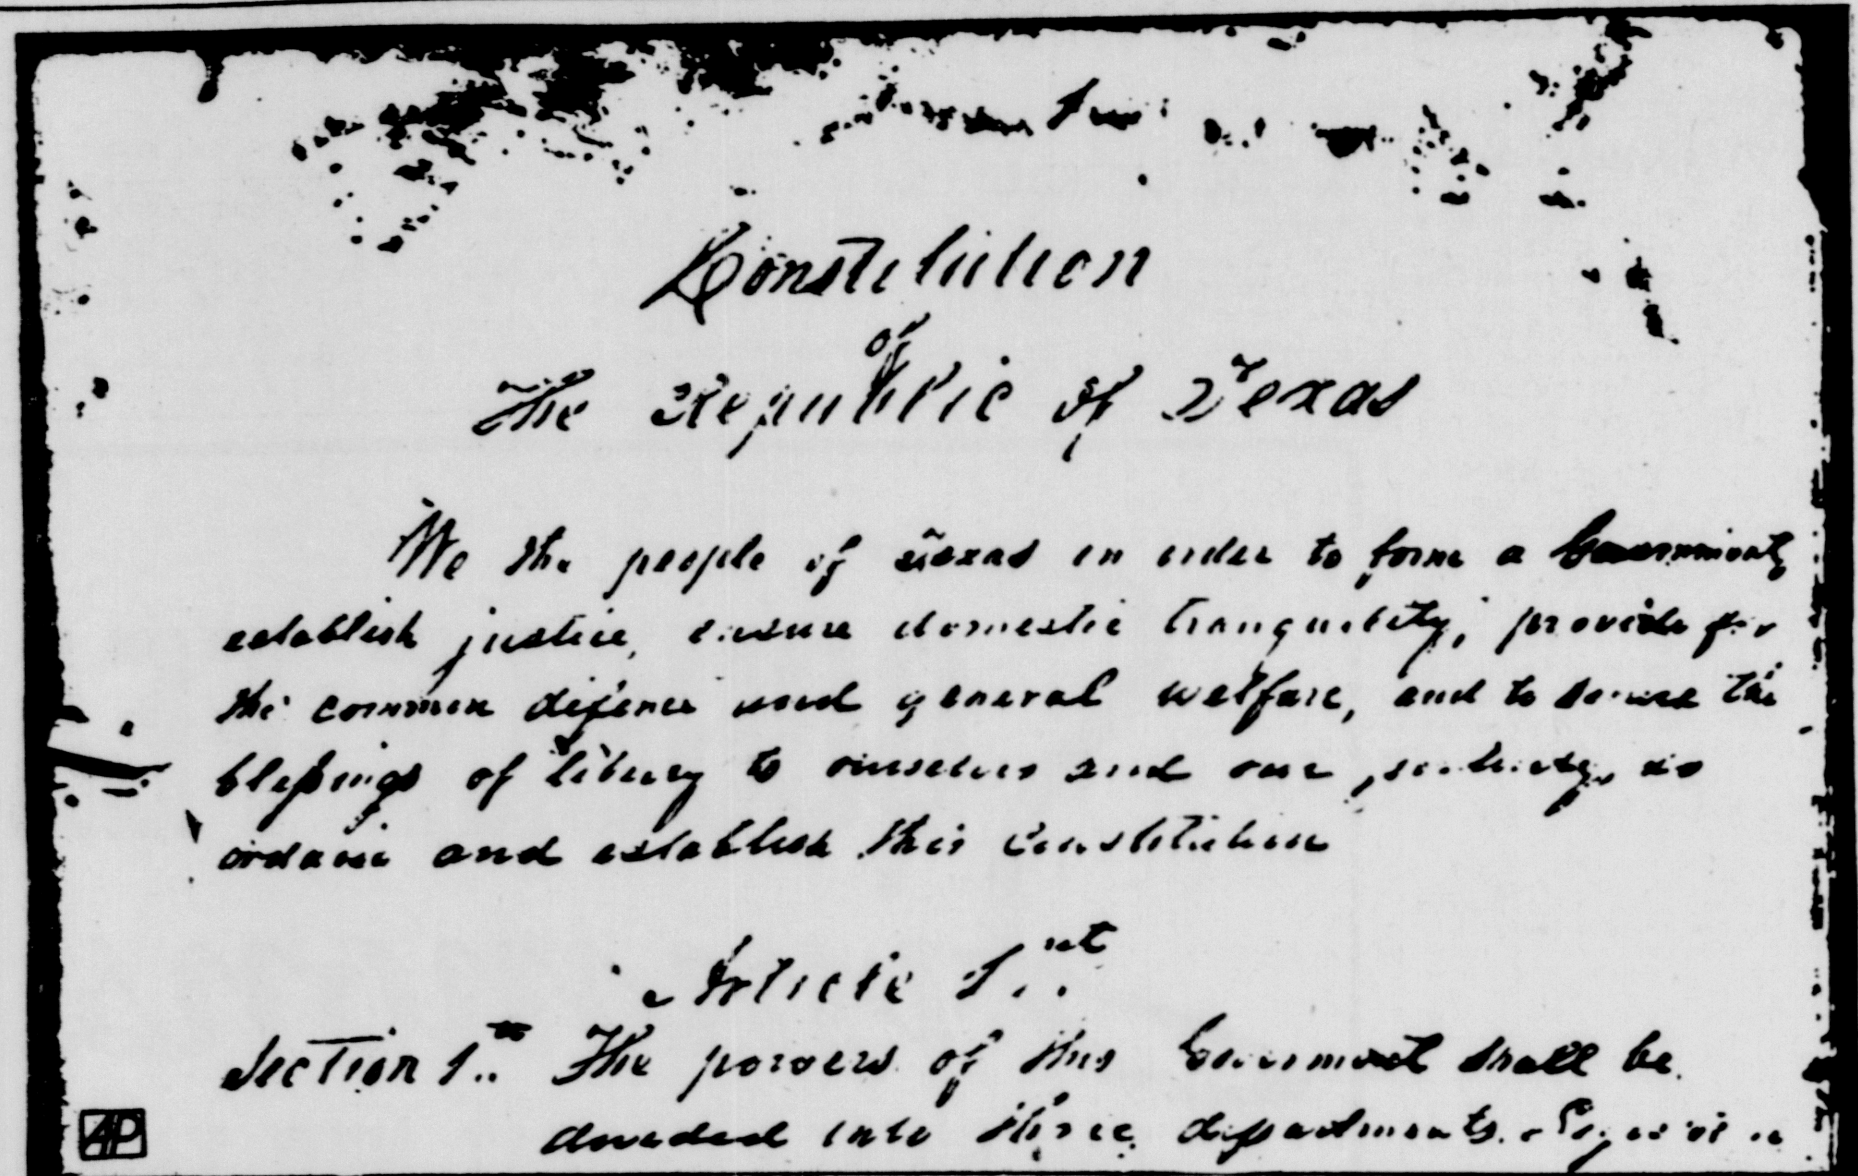 Constitution
of
The Republic of Texas
We the people of Texas in order to form a Government,
establish justice, ensure domestic tranquility; provide for
the common defence and general welfare, and to secure the
blessings of liberty to ourselves and our posterity, do
ordain and establish this Constitution
Article 1st
Section 1st The powers of this Government shall be
divided into three departments.
AP